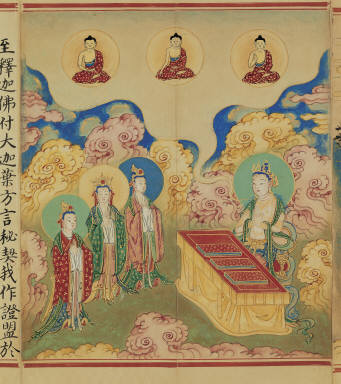 至釋迦佛付大迦葉方言秘契我作證盟於